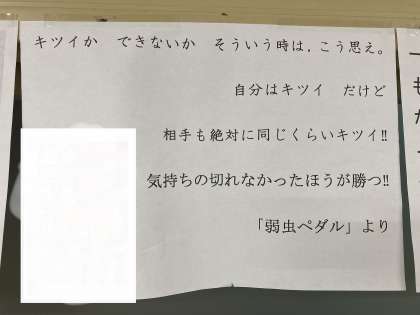 キツイか　できないか　そういう時は，こう思え。
自分はキツイ　だけど
相手も絶対に同じくらいキツイ!!
気持ちの切れなかったほうが勝つ!!
「弱虫ペダル」より